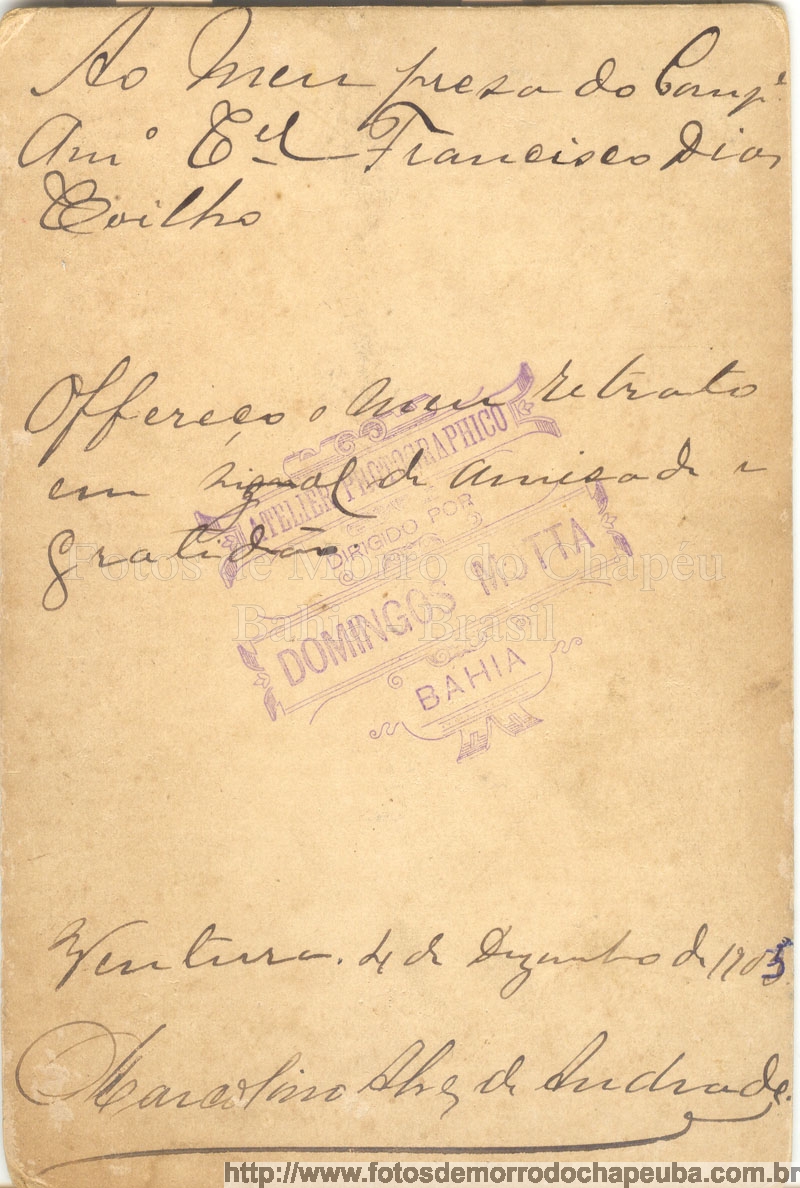 Ao Meu presado Comp.e
Am.º C.el Francisco Dias
Coelho
Offereço o meu retrato
em signal de amisade e
gratidão.
ATELIER PHOTOGRAPHICO
DIRIGIDO POR
DOMINGOS MOTTA
BAHIA
Fotos de Morro do Chapéu
Bahia - Brasil
Ventura. 4 de Dezembro de 1905
Marcolino Alvez de Andrade.
http://www.fotosdemorrodochapeuba.com.br